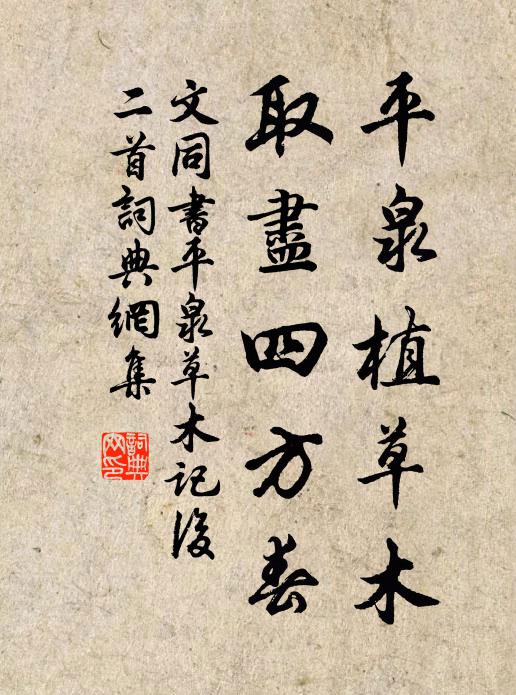 平泉植草木
取盡四方春
文同書平泉草木記後
二首詞典網集
詞典網印